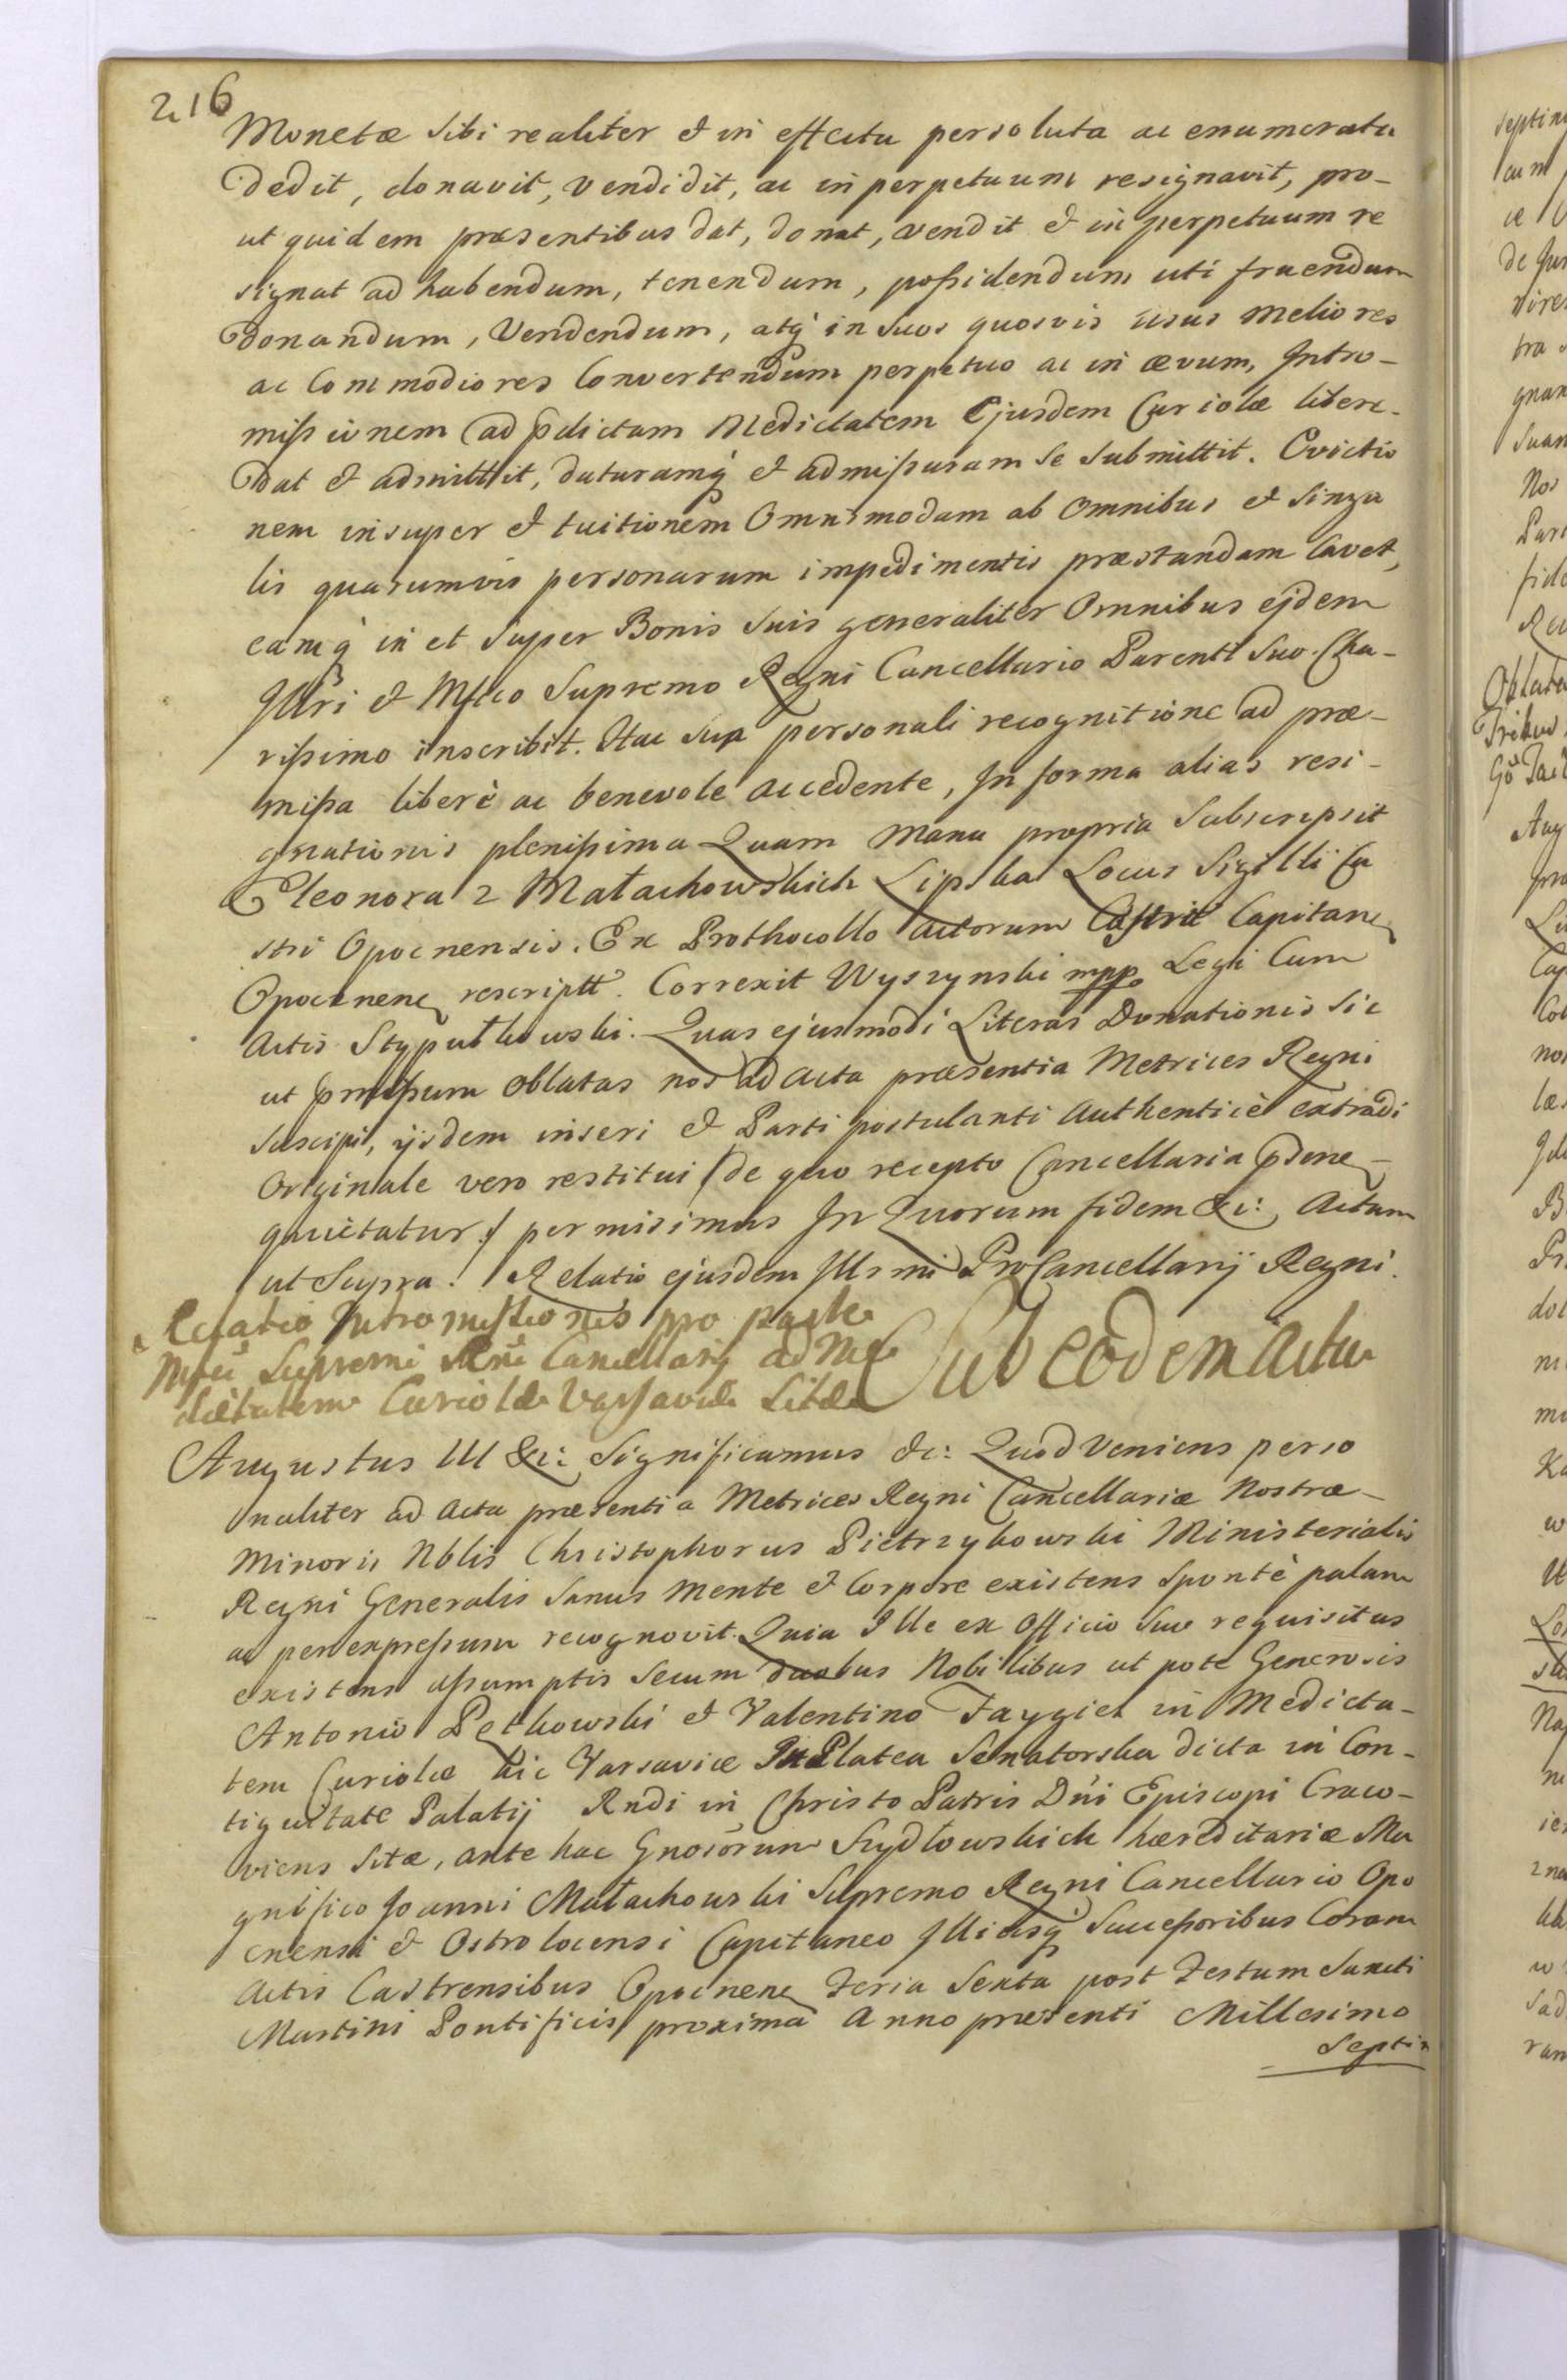 216
Monetæ sibi realiter et in effectu persoluta ac enumerata
dedit, donavit, vendidit, ac in perpetuum resignavit, pro-
ut quidem præsentibus dat, donat, vendit et in perpetuum re
signat ad habendum, tenendum, poßidendum uti fruendum
donandum, Vendendum, atq́ in suos quosvis usus meliores
ac Commodiores Convertendum perpetuo ac in ævum, Intro-
mißionem ad pdictam Medietatem Ejusdem Curiolæ libere
dat et admittit, daturamq́ et admißuram se submittit. Evictio
nem insuper et tuitionem Omnimodam ab omnibus et singu
lis quarumvis personarum impedimentis præstandam Cavet,
eamq́ in et super Bonis suis generaliter Omnibus ejdem
Illri et Mfico Supremo Regni Cancellario Parenti Suo Cha-
rißimo inscribit. Hac sua personali recognitione ad præ-
mißa liberè ac benevole accedente, In forma alias resi-
gnationis plenißima Quam manu propria Subscripsit
Eleonora z Małachowskich Lipska Locus Sigilli Ca
stri Opocnensis. Ex Prothocollo actorum Castrii Capitane
Opocinen rescriptt. Correxit Wyszynski mpp. Legi Cum
Actis Stypułkowski. Quas ejusmodi Literas Donationis sic
ut pmißum oblatas nos ad acta præsentia Metrices Regni
suscipi, ijsdem inseri et Parti postulanti Authenticè extradi
Originale vero restitui /de quo recepto Cancellaria pdene
quietatur/ permisimus In Quorum fidem &c: Actum
ut Supra. Relatio ejusdem Illsmi ProCancellarij Regni.
Relatio Intromissionis pro parte
Mfci Supremi Rni Cancellarij ad Me
dietatem Curiolæ Varsaviæ Sitæ
Sub eodem Actu
Augustus III &c: Significamus &c: Quod Veniens perso
naliter ad Acta præsentia Metrices Regni Cancellariæ Nostræ
Minoris Nblis Christophorus Pietrzykowski Ministerialis
Regni Generalis Sanus mente et Corpore existens spontè palam
ac per expreßum recognovit. Quia Ille ex Officio suo requisitus
existens aßumptis secum duobus Nobilibus ut pote Generosis
Antonio Petkowski et Valentino Faygiel in Medieta-
tem Curiolæ hic Varsaviæ In Platea Senatorska dicta in Con-
tiguitate Palatij Rndi in Christo Patris Dni Episcopi Craco-
viens Sitæ, ante hac Gnosorum Szydłowskich hæreditariæ Ma
gnifico Joanni Małachowski Supremo Regni Cancellario Opo
cnensi et Ostrołocensi Capitaneo Illiusq́ Succeßoribus Coram
Actis Castrensibus Opocnene Feria Sexta post Festum Sancti
Martini Pontificis proxima Anno præsenti Millesimo
Septin